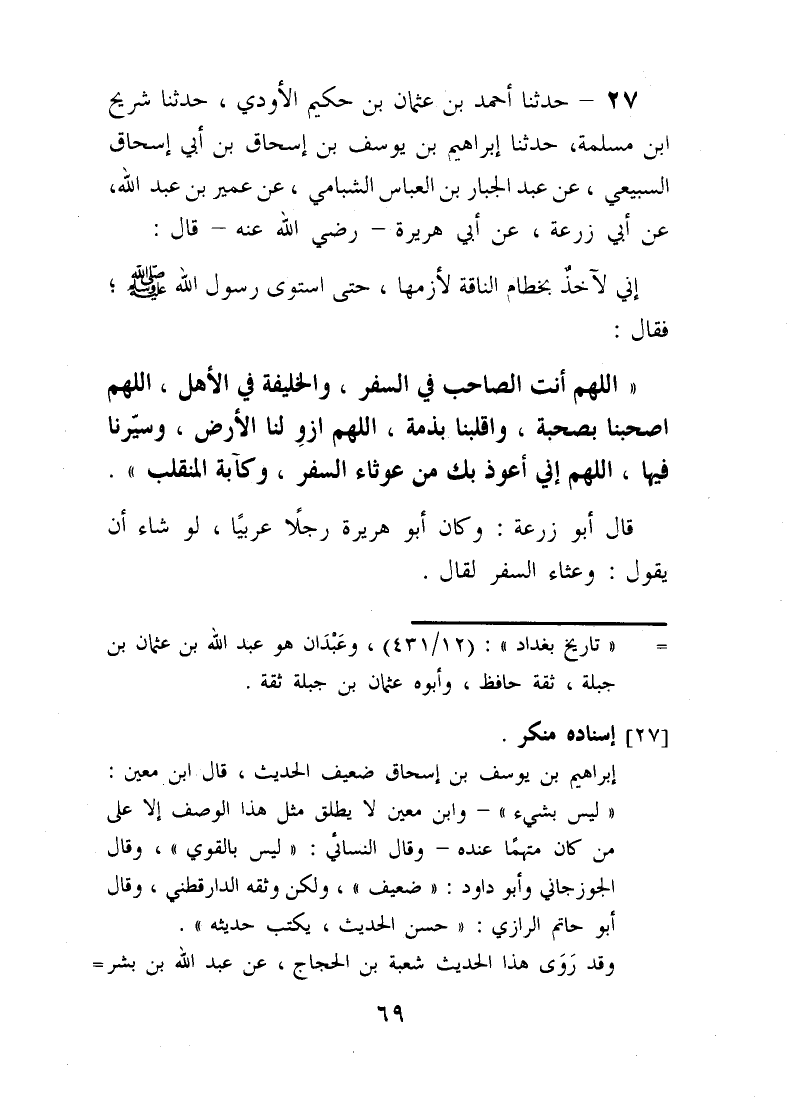 ٢٧ – حدثنا أحمد بن عثمان بن حكيم الأودي ، حدثنا شريح
ابن مسلمة، حدثنا إبراهيم بن يوسف بن إسحاق بن أبي إسحاق
السبيعي ، عن عبد الجبار بن العباس الشبامي ، عن عمير بن عبد الله،
عن أبي زرعة ، عن أبي هريرة – رضي الله عنه – قال :
إني لآخذٌ بخطام الناقة لأزمها ، حتى استوى رسول الله ﷺ ؛
فقال :
« اللهم أنت الصاحب في السفر ، والخليفة في الأهل ، اللهم
اصحبنا بصحبة ، واقلبنا بذمة ، اللهم ازوِ لنا الأرض ، وسيّرنا
فيها ، اللهم إني أعوذ بك من عوثاء السفر ، وكآبة المنقلب » .
قال أبو زرعة : وكان أبو هريرة رجلًا عربيًا ، لو شاء أن
يقول : وعثاء السفر لقال .
= « تاريخ بغداد » : (٤٣١/١٢) ، وعَبْدَان هو عبد الله بن عثمان بن
جبلة ، ثقة حافظ ، وأبوه عثمان بن جبلة ثقة .
[٢٧] إسناده منكر .
إبراهيم بن يوسف بن إسحاق ضعيف الحديث ، قال ابن معين :
« ليس بشيء » – وابن معين لا يطلق مثل هذا الوصف إلا على
من كان متهمًا عنده – وقال النسائي : « ليس بالقوي » ، وقال
الجوزجاني وأبو داود : « ضعيف » ، ولكن وثقه الدارقطني ، وقال
أبو حاتم الرازي : « حسن الحديث ، يكتب حديثه » .
وقد رَوَى هذا الحديث شعبة بن الحجاج ، عن عبد الله بن بشر=
٦٩